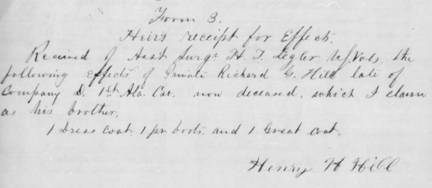 Form 3.
Heirs receipt for Effects.
Received of Asst Surgn H. T. Legler US Vols. the
following effects of Private Richard G. Hill late of
Company D. 1st Ala Cav. now deceased, which I claim
as his brother.
1 Dress coat. 1 pr. boots. and 1 Great coat.
Henry H Hill